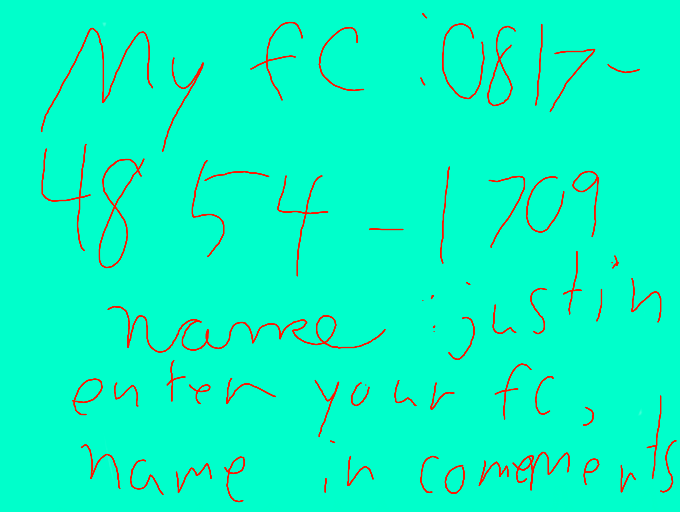 My fC : 0817-
4854-1709
name : justin
enter your fc,
name in comments